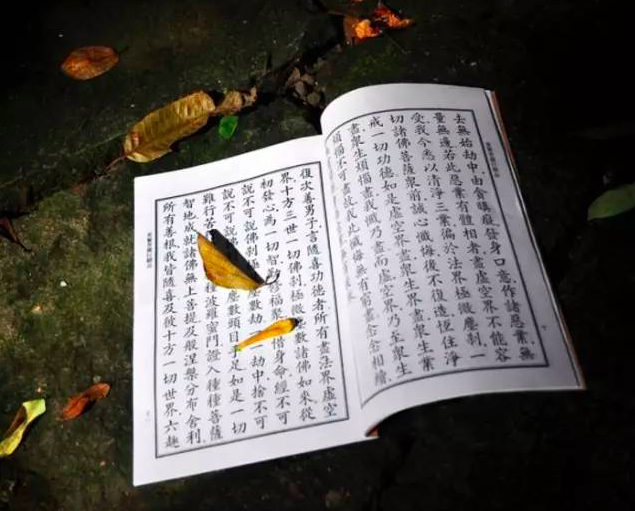 去無始劫中，由貪瞋癡發身口意作諸惡業，無
量無邊，若此惡業有體相者，盡虛空界不能容
受，我今悉以清淨三業，徧於法界極微塵剎一
切諸佛菩薩眾前，誠心懺悔，後不復造，恆住淨
戒一切功德，如是虛空界盡，眾生界盡，眾生業
盡，眾生煩惱盡，我懺乃盡，而虛空界乃至眾生
煩惱不可盡故，我此懺悔無有窮盡，念念相續，
復次善男子，言隨喜功德者，所有盡法界虛空
界，十方三世一切佛剎極微塵數諸佛如來，從
初發心為一切智 福聚，不惜身命，經不可
說不可說佛剎極微塵數劫， 一劫中，捨不可
說不可說佛 塵數頭目手足，如是一切
難行苦 種波羅蜜門，證入種種菩薩
智地，成就諸佛無上菩提，及般涅槃分布舍利，
所有善根，我皆隨喜，及彼十方一切世界六趣